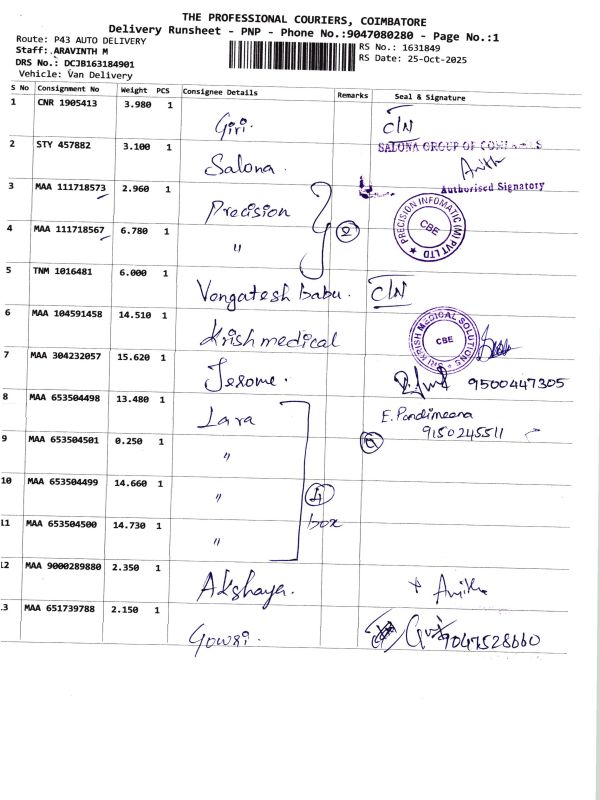 THE PROFESSIONAL COURIERS, COIMBATORE
Delivery Runsheet - PNP - Phone No.:9047080280 - Page No.:1
Route: P43 AUTO DELIVERY
RS No.: 1631849
Staff: ARAVINTH M
RS Date: 25-Oct-2025
DRS No.: DCJB163184901
Vehicle: Van Delivery
S No Consignment No Weight PCS Consignee Details Remarks Seal & Signature
1 CNR 1905413 3.980 1 Giri. C/N
2 STY 457882 3.100 1 Salona.
SALONA GROUP OF
Authorised Signatory
3 MAA 111718573 2.960 1 Precision
PRECISION INFOMATIC (M) PVT LTD
CBE
4 MAA 111718567 6.780 1 " 2
5 TNM 1016481 6.000 1 Vengatesh Babu. C/N
6 MAA 104591458 14.510 1 Krish medical
SRI KRISH MEDICAL SOLUTIONS
CBE
7 MAA 304232057 15.620 1 Jerome. 9500447305
8 MAA 653504498 13.480 1 Lara E. Pandimeena
9150245511
9 MAA 653504501 0.250 1 "
10 MAA 653504499 14.660 1 " 4
box
11 MAA 653504500 14.730 1 "
12 MAA 9000289880 2.350 1 Akshaya.
13 MAA 651739788 2.150 1 Gowri. 9047528660